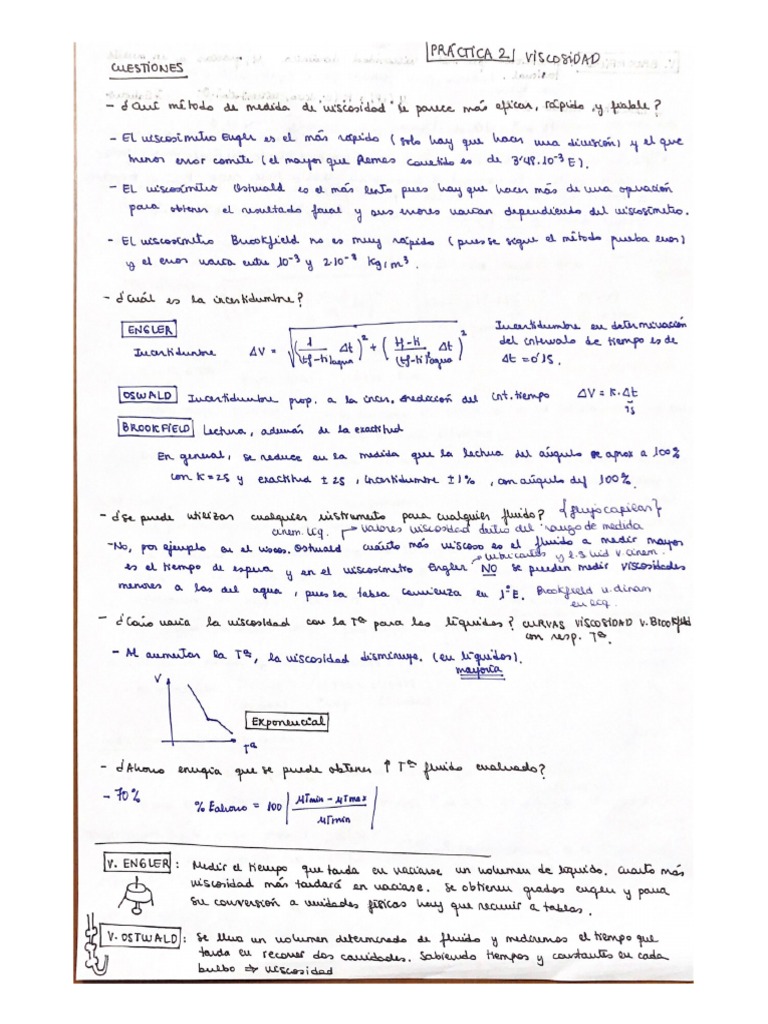 PRÁCTICA 2 VISCOSIDAD
CUESTIONES
- ¿Qué método de medida de viscosidad se parece más eficaz, rápido y fiable?
- El viscosímetro Engler es el más rápido (solo hay que hacer una división) y el que
menor error comete (el mayor que hemos cometido es de 3'48·10⁻³ E).
- El viscosímetro Ostwald es el más lento pues hay que hacer más de una operación
para obtener el resultado final y sus errores varían dependiendo del viscosímetro.
- El viscosímetro Brookfield no es muy rápido (pues se sigue el método prueba error)
y el error varía entre 10⁻³ y 2·10⁻³ Kg/m³.
- ¿Cuál es la incertidumbre?
ENGLER
Incertidumbre ΔV = √((1/(tf-ti)agua Δt)² + ((tf-ti)/(tf-ti)²agua Δt)²)
Incertidumbre en determinación
del intervalo de tiempo es de
Δt = 0'1s.
OSWALD Incertidumbre prop. a la incer. medición del int. tiempo ΔV = K·Δt
1s
BROOKFIELD Lectura, además de la exactitud
En general, se reduce en la medida que la lectura del ángulo se aprox a 100%
con K=25 y exactitud ± 25, incertidumbre ±1%, con ángulo def 100%.
- ¿Se puede utilizar cualquier instrumento para cualquier fluido? {flujo capilar}
cinem. líq. → valores viscosidad dentro del rango de medida
- No, por ejemplo en el viscos. Ostwald cuánto más viscoso es el fluido a medir mayor
es el tiempo de espera y en el viscosímetro Engler NO se pueden medir viscosidades
→ lubricantes y v. cinem.
menores a las del agua, pues la tabla comienza en 1°E. Brookfield v. dinam
en líq.
- ¿Cómo varía la viscosidad con la Tª para los líquidos? CURVAS VISCOSIDAD V. Brookfield
con resp. Tª
- Al aumentar la Tª, la viscosidad disminuye. (en líquidos).
mayoría
V
Exponencial
Tª
- ¿Ahorro energía que se puede obtener ↑ Tª fluido evaluado?
- 70% % Eahorro = 100 |(μTmin - μTmax)/μTmin|
V. ENGLER: Medir el tiempo que tarda en vaciarse un volumen de líquido. Cuanto más
viscosidad más tardará en vaciarse. Se obtienen grados engler y para
su conversión a unidades físicas hay que recurrir a tablas.
V. OSTWALD: Se llena un volumen determinado de fluido y medimos el tiempo que
tarda en recorrer dos cavidades. Sabiendo tiempos y constantes en cada
bulbo ⇒ viscosidad